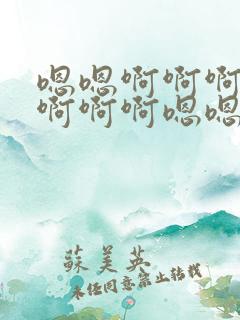 嗯嗯啊啊啊
啊啊啊嗯嗯
蘇美英
未经同意禁止转载